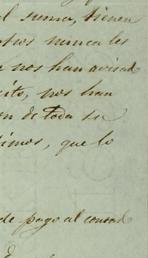 l suma, tienen
otros nunca les
nos han avisad
cito, nos han
en de toda su
timos, que lo
de pago al contad